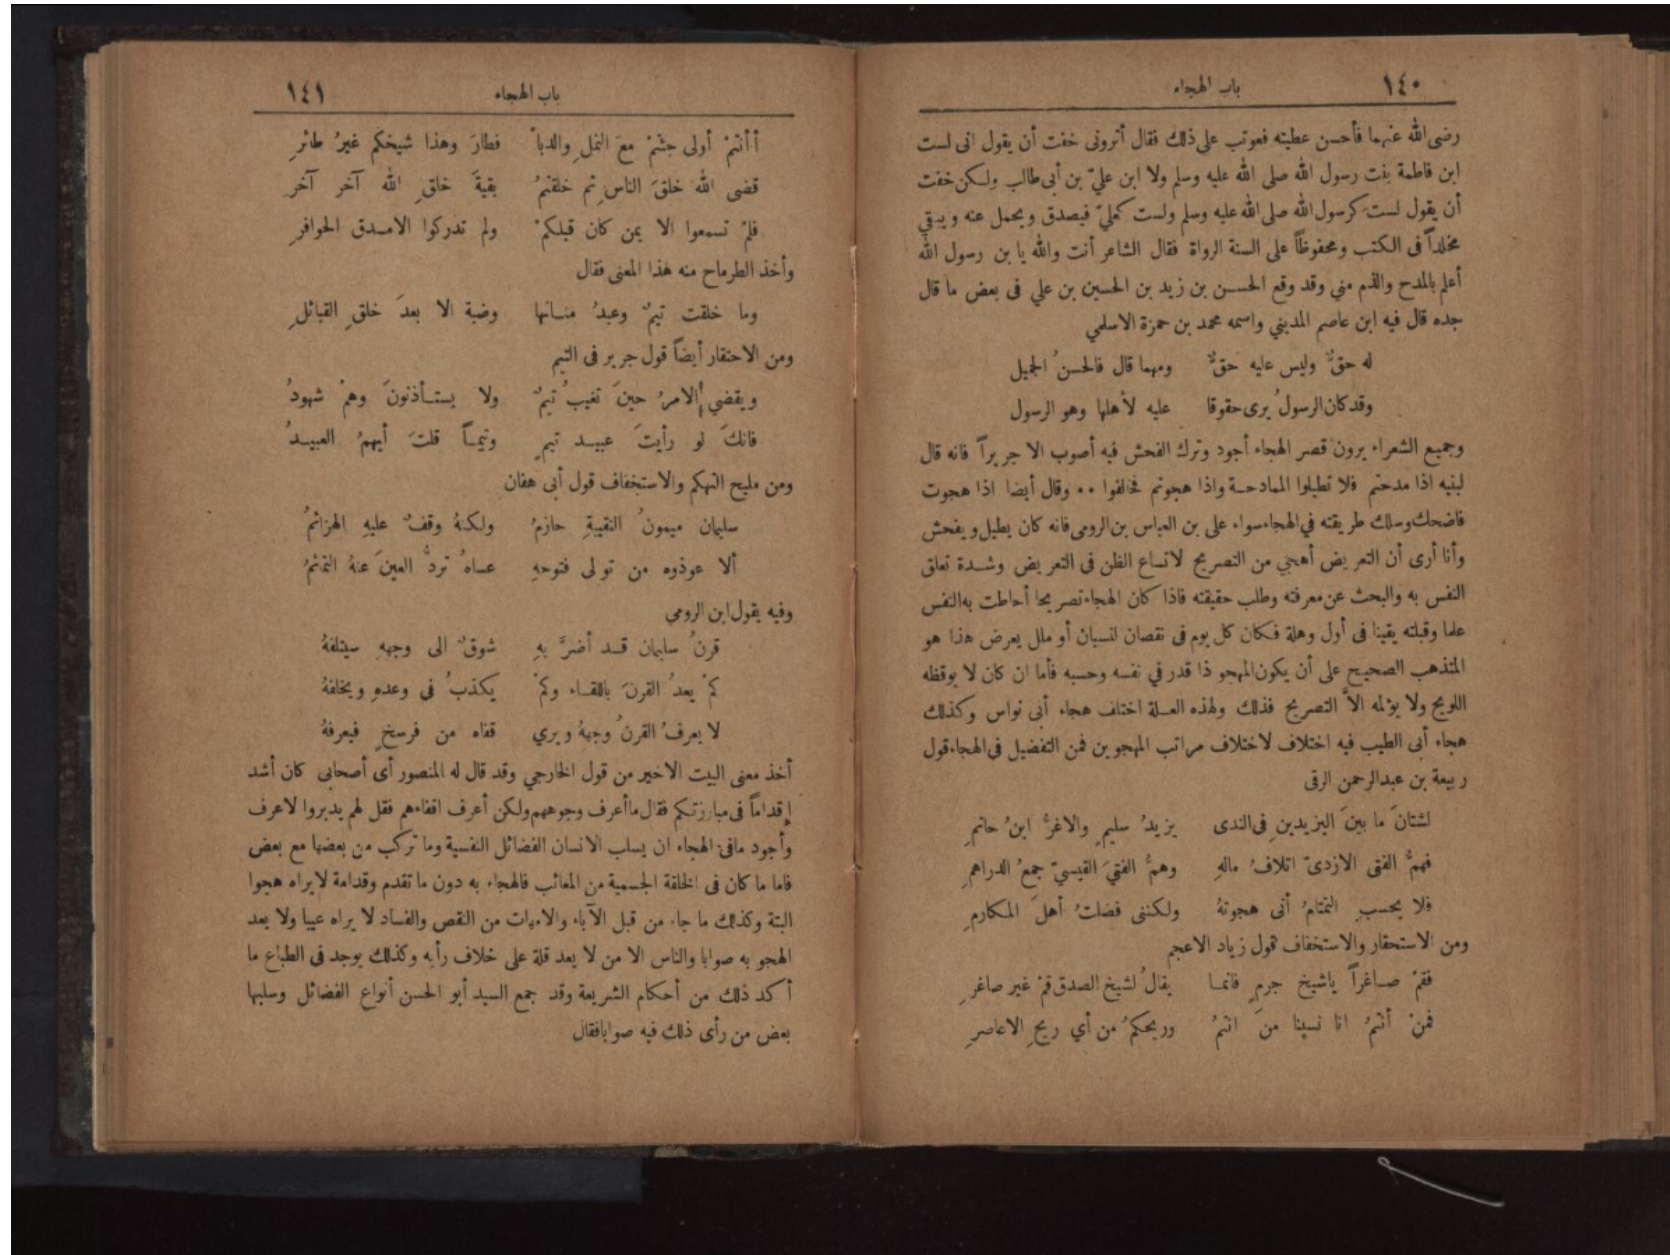 ١٤٠
باب الهجاء
رضى الله عنهما فأحسن عطيته فعوتب على ذلك فقال أترونى خفت أن يقول انى لست
ابن فاطمة بنت رسول الله صلى الله عليه وسلم ولا ابن عليّ بن أبى طالب ولكن خفت
أن يقول لست كرسول الله صلى الله عليه وسلم ولست كعليّ فيصدق ويحمل عنه ويبقي
مخلداً فى الكتب ومحفوظاً على السنة الرواة فقال الشاعر أنت والله يا بن رسول الله
أعلم بالمدح والذم مني وقد وقع الحسن بن زيد بن الحسين بن علي فى بعض ما قال
جده قال فيه ابن عاصم المديني واسمه محمد بن حمزة الاسلمي
له حقٌّ وليس عليه حقٌّ ومهما قال فالحسنُ الجميل
وقد كان الرسولُ يرى حقوقا عليه لأهلها وهو الرسول
وجميع الشعراء يرون قصر الهجاء أجود وترك الفحش فيه أصوب الا جريراً فانه قال
لبنيه اذا مدحتم فلا تطيلوا الممادحة واذا هجوتم فخالفوا ٠٠ وقال أيضا اذا هجوت
فاضحك وسلك طريقته في الهجاء سواء على بن العباس بن الرومى فانه كان يطيل ويفحش
وأنا أرى أن التعريض أهجي من التصريح لاتساع الظن فى التعريض وشدة تعلق
النفس به والبحث عن معرفته وطلب حقيقته فاذا كان الهجاء تصريحا أحاطت به النفس
علما وقبلته يقينا فى أول وهلة فكان كل يوم فى نقصان لنسيان أو ملل يعرض هذا هو
المذهب الصحيح على أن يكون المهجو ذا قدر في نفسه وحسبه فأما ان كان لا يوقظه
اللويح ولا يؤلمه الاَّ التصريح فذلك ولهذه العلة اختلف هجاء أبى نواس وكذلك
هجاء أبى الطيب فيه اختلاف لاختلاف مراتب المهجوين فمن التفضيل فى الهجاء قول
ربيعة بن عبدالرحمن الرقى
لشتانَ ما بينَ اليزيدينِ فى الندى يزيدُ سليمٍ والاغرُّ ابنُ حاتمِ
فهمُّ الفتى الازدىّ اتلافُ مالهِ وهمُّ الفتىَ القيسيّ جمعُ الدراهمِ
فلا يحسبِ التمتامُ أنى هجوتهُ ولكننى فضلتُ أهلَ المكارمِ
ومن الاستحقار والاستخفاف قول زياد الاعجم
فقمْ صاغراً ياشيخ جرمٍ فانما يقالُ لشيخ الصدق قمْ غير صاغرِ
فمنْ أنتمُ انا نسينا منَ انتمُ وريحكمُ من أي ريحِ الاعاصرِ
باب الهجاء
١٤١
أأنتمْ أولى جئتمْ معَ النملِ والدبا فطارَ وهذا شيخكم غيرُ طائرِ
قضى اللهُ خلقَ الناسِ ثم خلقتمُ بقيةَ خلقِ الله آخر آخرِ
فلمْ تسمعوا الا بمن كان قبلكمْ ولم تدركوا الامدق الحوافرِ
وأخذ الطرماح منه هذا المعنى فقال
وما خلقت تيمٌ وعبدُ مناتها وضبة الا بعدَ خلقِ القبائلِ
ومن الاحتقار أيضاً قول جرير فى التيم
ويقضي الامرُ حينَ تغيبُ تيمٌ ولا يستأذنونَ وهمْ شهودُ
فانكَ لو رأيتَ عبيد تيمٍ وتيماً قلتَ أيهمُ العبيدُ
ومن مليح التهكم والاستخفاف قول أبى هفان
سليمان ميمونُ النقيبةِ حازمُ ولكنهُ وقفٌ عليهِ الهزائمُ
ألا عوذوه من توالى فتوحهِ عساهُ تردُّ العينَ عنهُ التمائمُ
وفيه يقول ابن الرومى
قرنُ سليمان قد أضرَّ بهِ شوقٌ الى وجههِ سيتلفهُ
كمْ يعدُ القرنَ باللقاء وكمْ يكذبُ فى وعدهِ ويخلفهُ
لا يعرفُ القرنُ وجههُ ويري قفاه من فرسخٍ فيعرفهُ
أخذ معنى البيت الاخير من قول الخارجي وقد قال له المنصور أى أصحابى كان أشد
إقداماً فى مبارزتكم فقال ما أعرف وجوههم ولكن أعرف اقفاءهم فقل لهم يدبروا لاعرف
وأجود مافى الهجاء ان يسلب الانسان الفضائل النفسية وما تركب من بعضها مع بعض
فاما ما كان فى الخلقة الجسمية من المعائب فالهجاء به دون ما تقدم وقدامة لايراه هجوا
البتة وكذلك ما جاء من قبل الآباء والامهات من النقص والفساد لا يراه عيبا ولا يعد
الهجو به صوابا والناس الا من لا يعد قلة على خلاف رأيه وكذلك يوجد فى الطباع ما
أكد ذلك من أحكام الشريعة وقد جمع السيد أبو الحسن أنواع الفضائل وسلبها
بعض من رأى ذلك فيه صوابا فقال